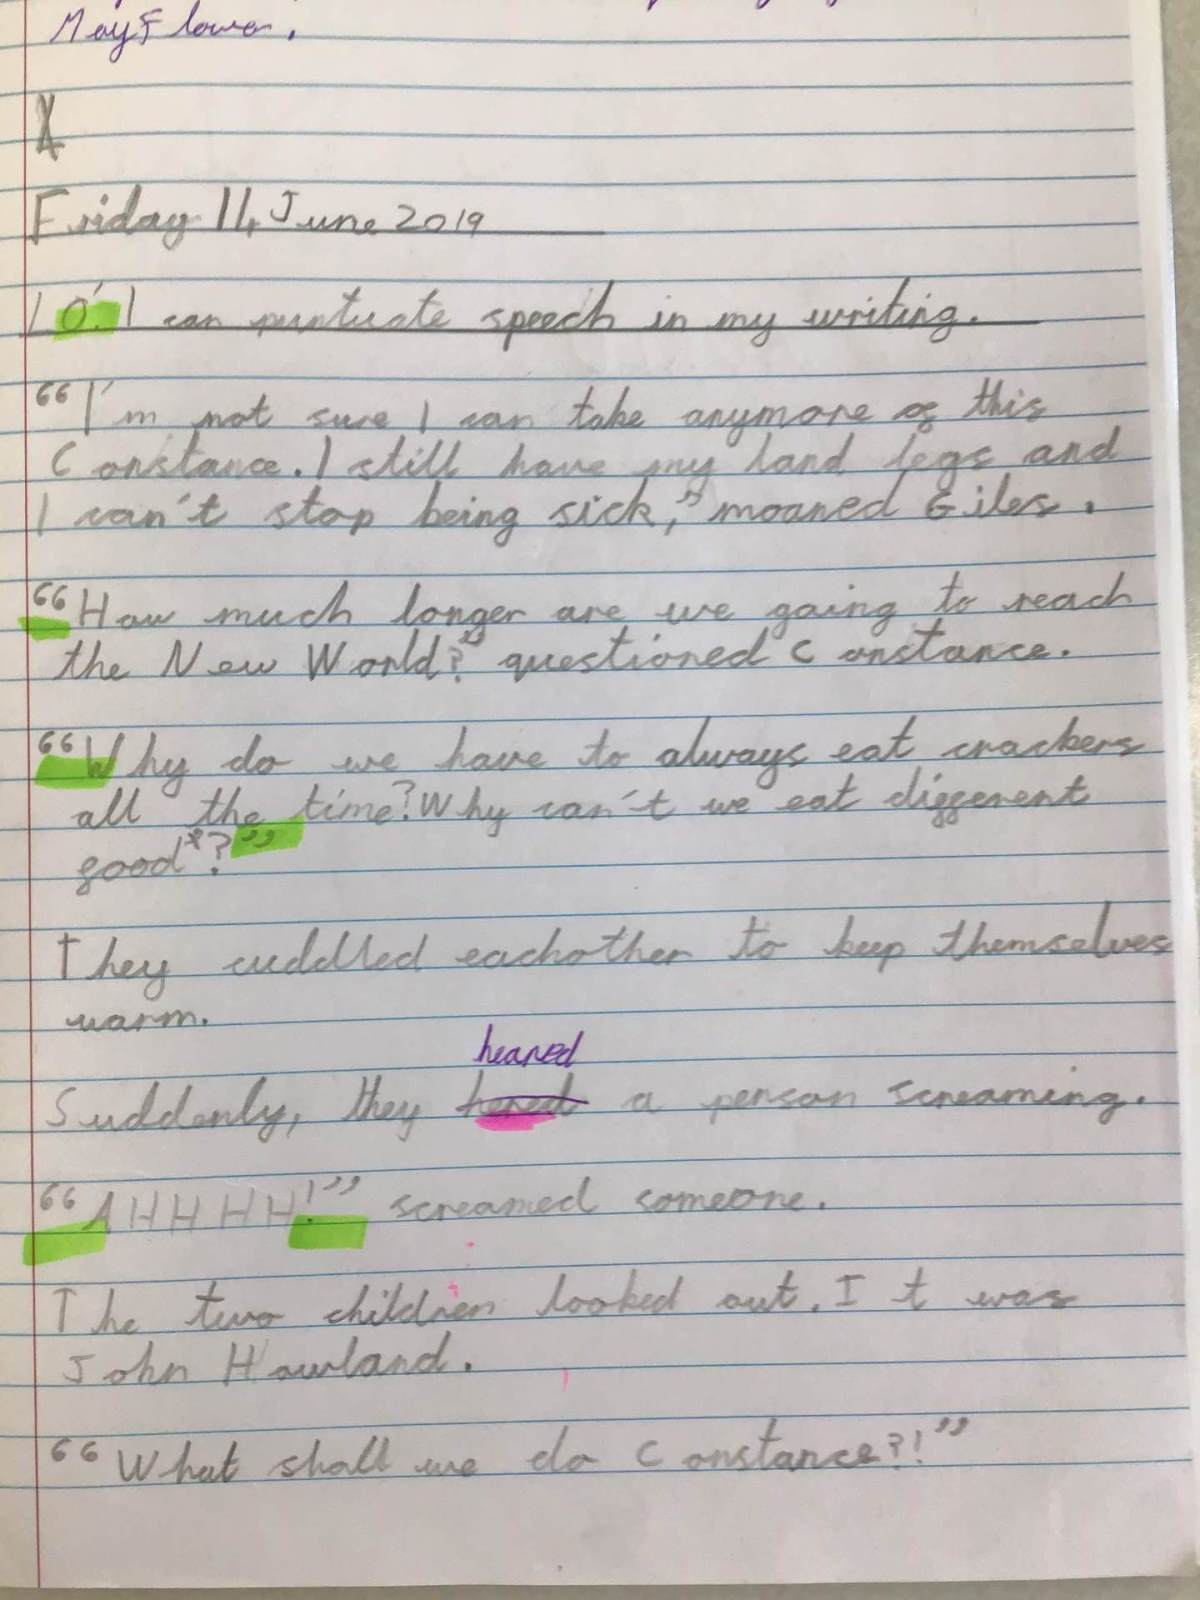 MayFlower.
Friday 14 June 2019
LO: I can puntuate speech in my writing.
"I'm not sure I can take anymore of this
Constance. I still have my land legs and
I can't stop being sick," moaned Giles.
"How much longer are we going to reach
the New World?" questioned Constance.
"Why do we have to always eat crackers
all the time? Why can't we eat different
food*?"
They cuddled eachother to keep themselves
warm.
heared
Suddenly, they hered a person screaming.
"AHHHH!" screamed someone.
The two children looked out. It was
John Howland.
"What shall we do Constance?!"